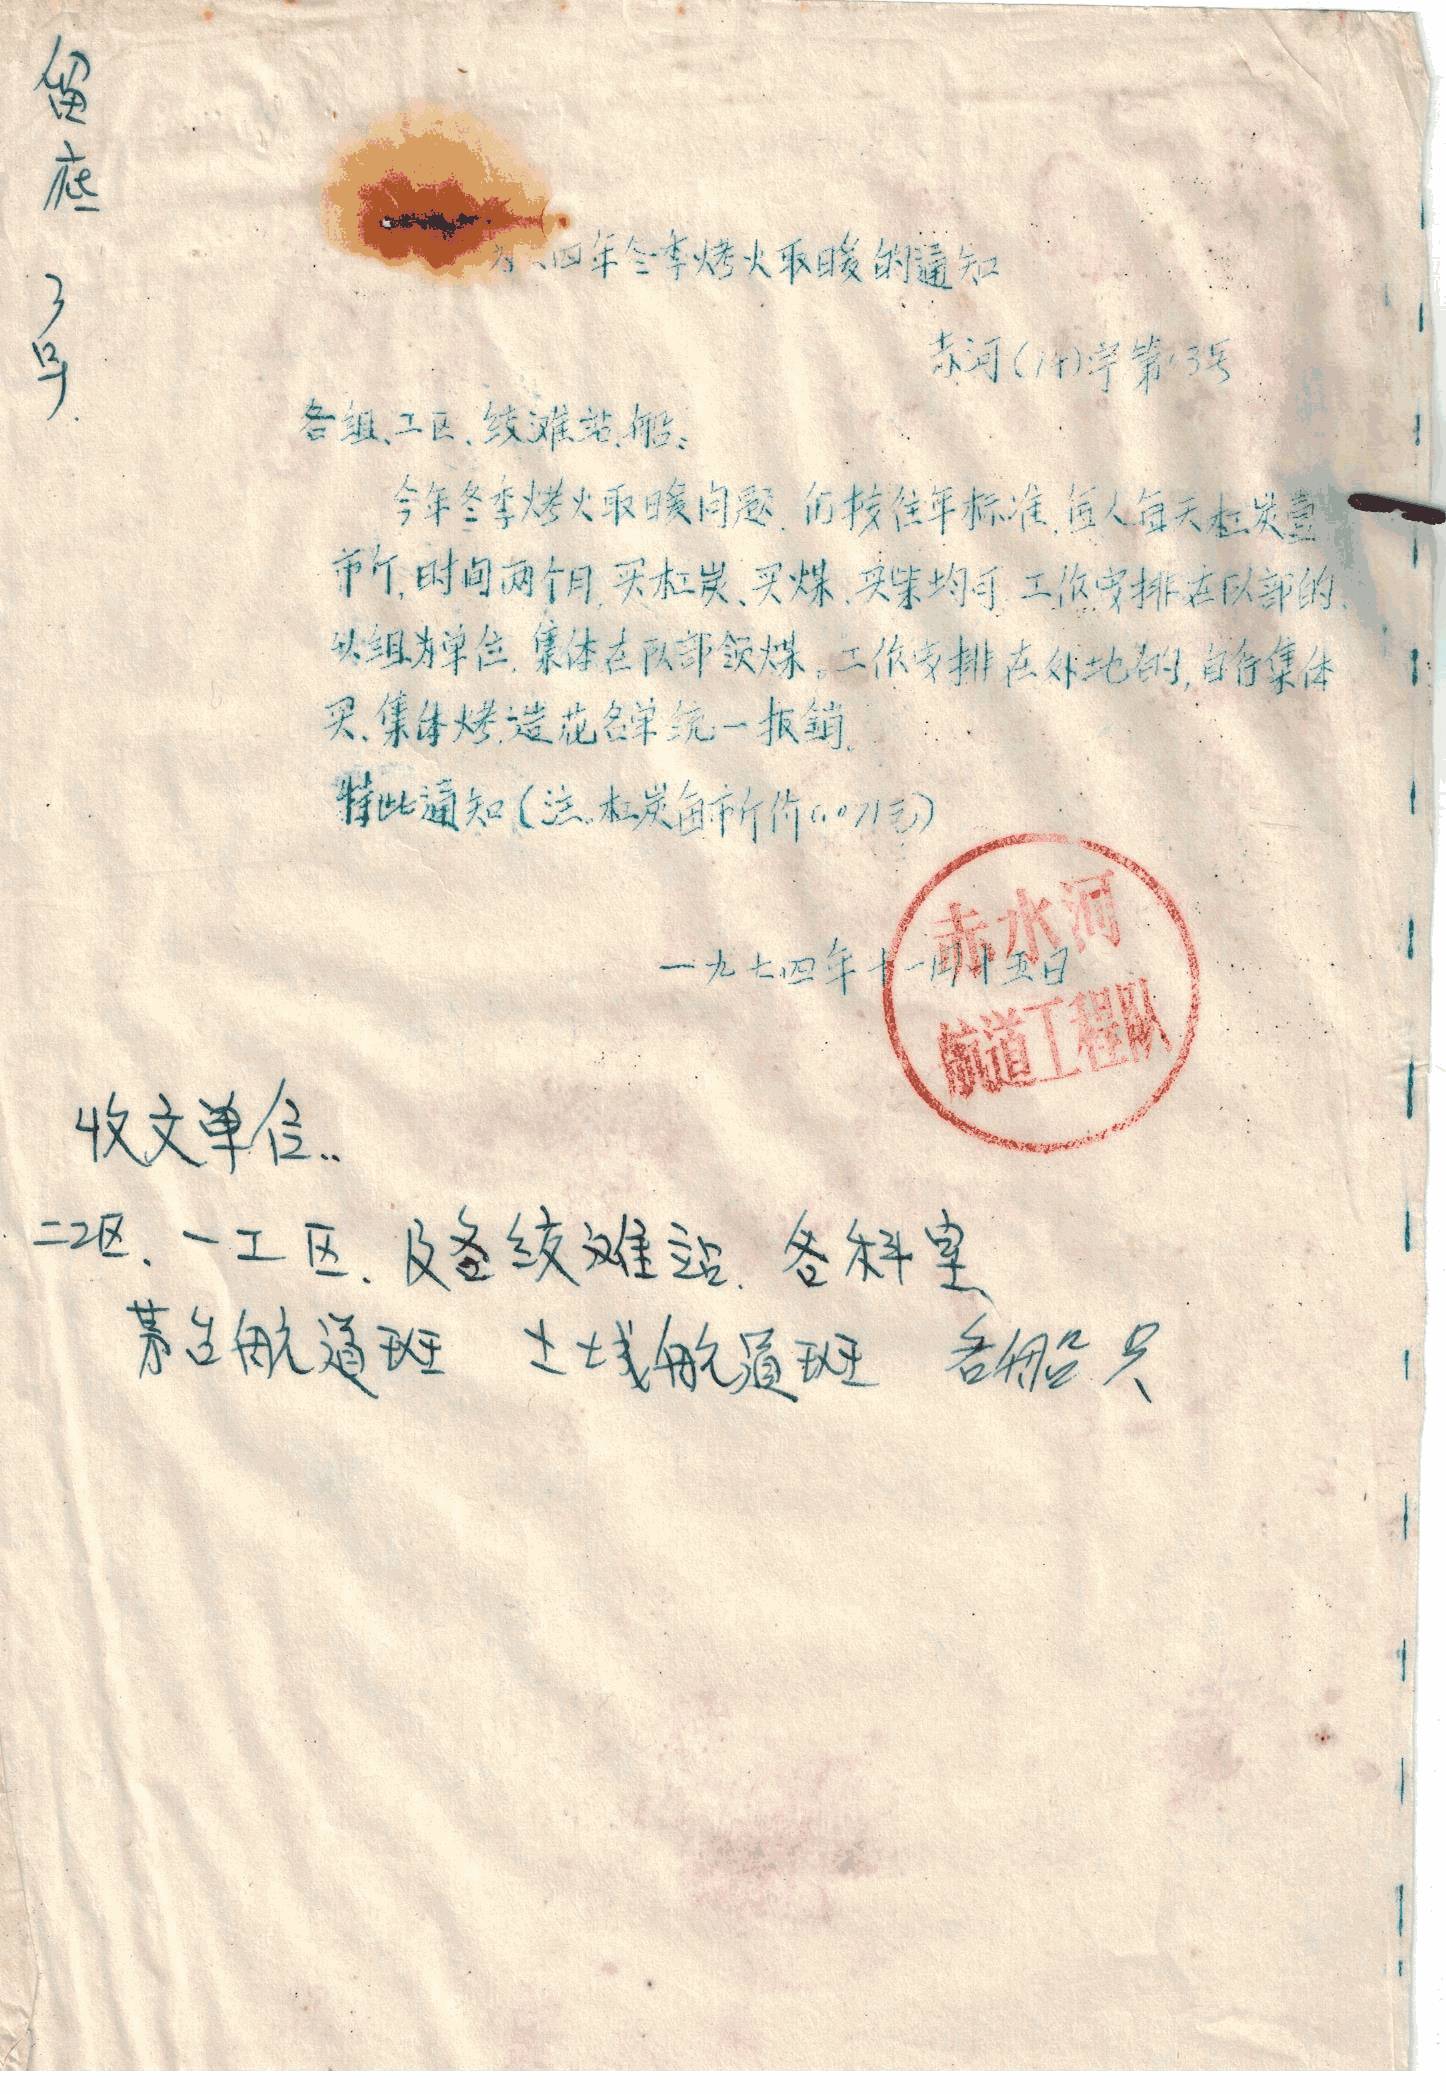 留底
3号.
四年冬季烤火取暖的通知
赤河(74)字第13号
各组、工区、绞滩站、船:
今年冬季烤火取暖问题,仍按往年标准,每人每天杠炭壹
市斤,时间两个月,买杠炭、买煤、买柴均可,工作安排在队部的、
以组为单位,集体在队部领煤。工作安排在外地的,自行集体
买、集体烤,造花名单统一报销。
特此通知(注:杠炭每市斤价0.071元)
一九七四年十一月十五日
赤水河
航道工程队
收文单位:
二工区、一工区、及各绞滩站、各科室
茅台航道班 土城航道班 各船只